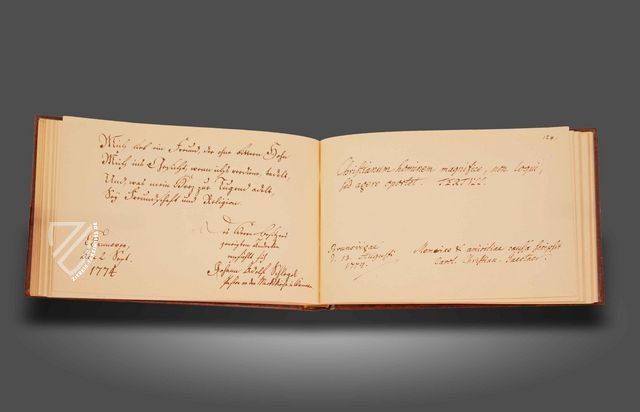 Mich lieb ein Freund, der ohne bittern Hohn
Mich ins Gesicht, wenn ich's verdiene, tadelt,
Und was mein Herz zur Tugend adelt,
Sey Freundschaft und Religion.
Hannover,
d. 2 Sept.
1774
Johann Adolf Schlegel
124.
Christianum hominem magnifice, non loqui,
sed agere oportet. TERTULL.
Brunsvigae
d. 13. Augusti
1774.
Memoriae & amicitiae caussa scripsit
Carol. Christian. Gaertner.